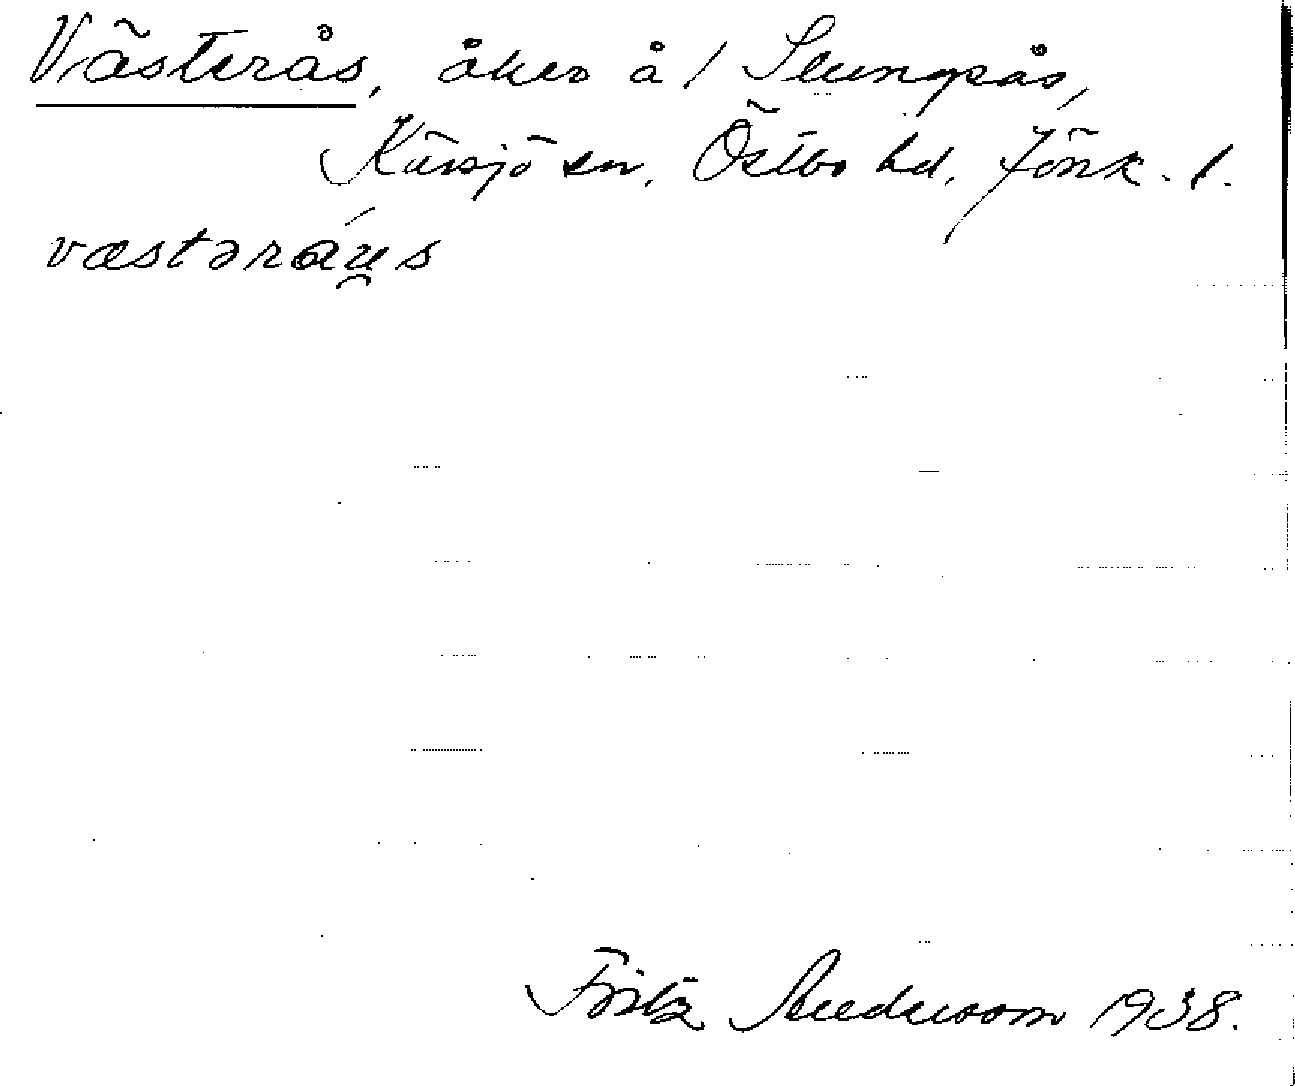 Västerås, åker å 1 Slungsås,
Kävsjö sn. Östbo hd. Jönk. l.
væstəráu̯s
Fritz Andersson 1938.